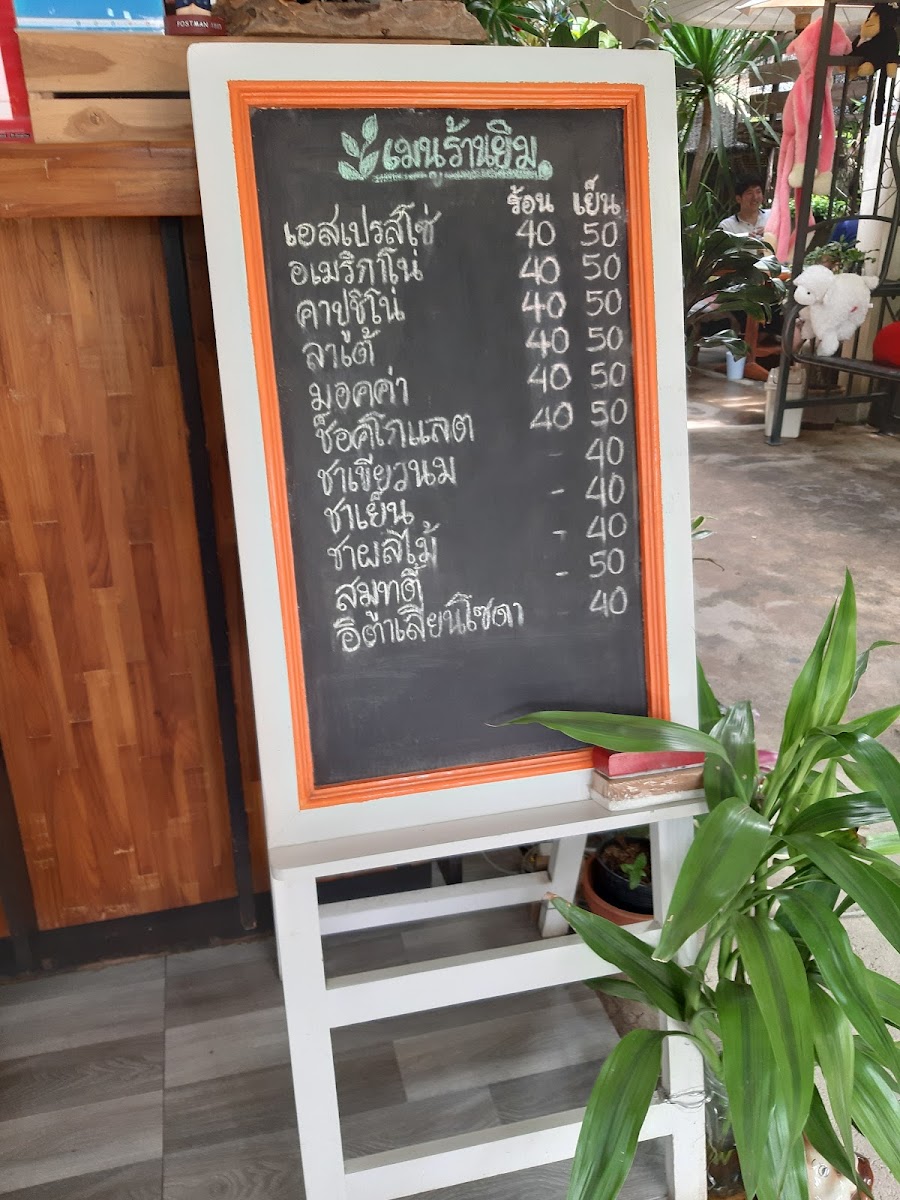 POSTMAN
เมนูร้านยิม
ร้อน เย็น
เอสเปรสโซ่ 40 50
อเมริกาโน่ 40 50
คาปูชิโน่ 40 50
ลาเต้ 40 50
มอคค่า 40 50
ช็อคโกแลต 40 50
ชาเขียวนม - 40
ชาเย็น - 40
ชาผลไม้ - 40
สมูทตี้ - 50
อิตาเลียนโซดา 40